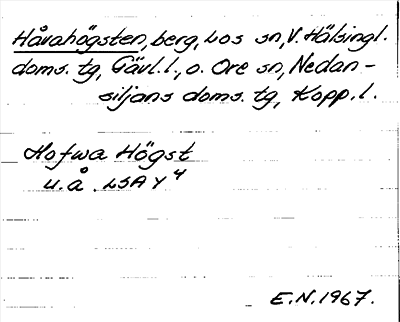 Håvahögsten, berg, Los sn, V. Hälsingl.
doms. tg, Gävl. l., o. Ore sn, Nedan-
siljans doms. tg, Kopp. l.
Hofwa Högst
u. å. LSA Y 4
E.N. 1967.